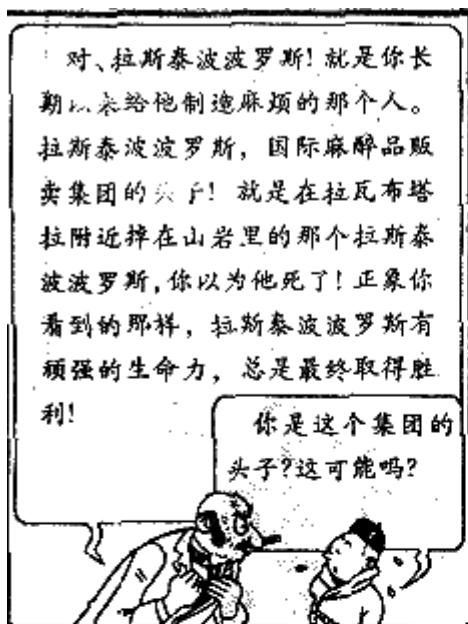 对、拉斯泰波波罗斯!就是你长
期以来给他制造麻烦的那个人。
拉斯泰波波罗斯,国际麻醉品贩
卖集团的头子!就是在拉瓦布塔
拉附近掉在山岩里的那个拉斯泰
波波罗斯,你以为他死了!正象你
看到的那样,拉斯泰波波罗斯有
顽强的生命力,总是最终取得胜
利!
你是这个集团的
头子?这可能吗?